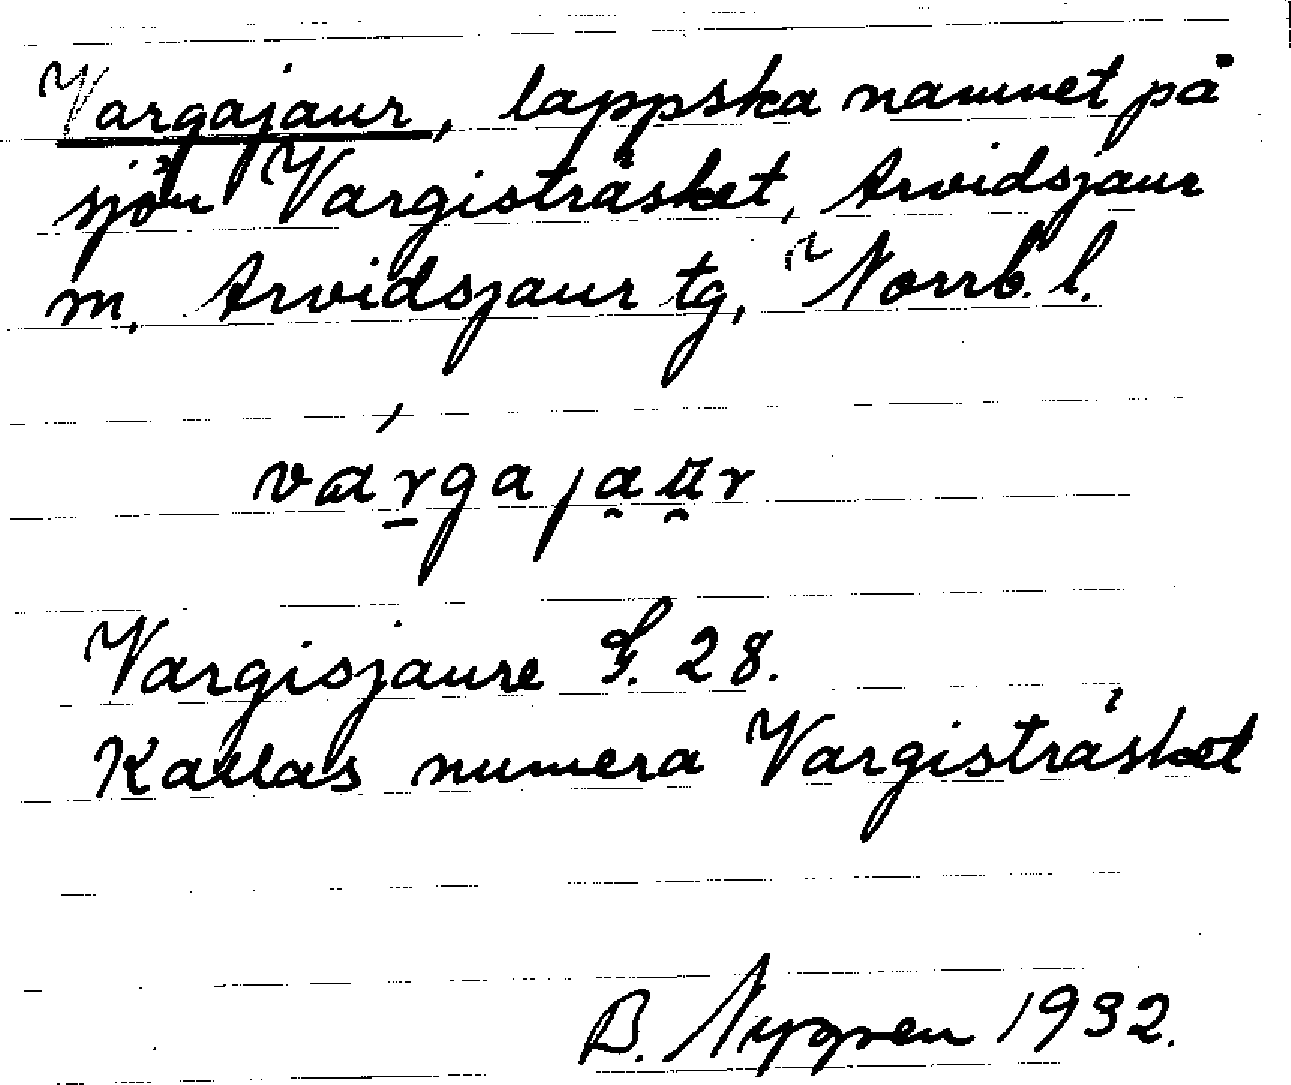 Vargajaur, lappska namnet på
sjön Vargisträsket, Arvidsjaur
m. Arvidsjaur tg, Norrb. l.
várgajau̯r
Vargisjaure S. 28.
Kallas numera Vargisträsket
B. Nygren 1932.